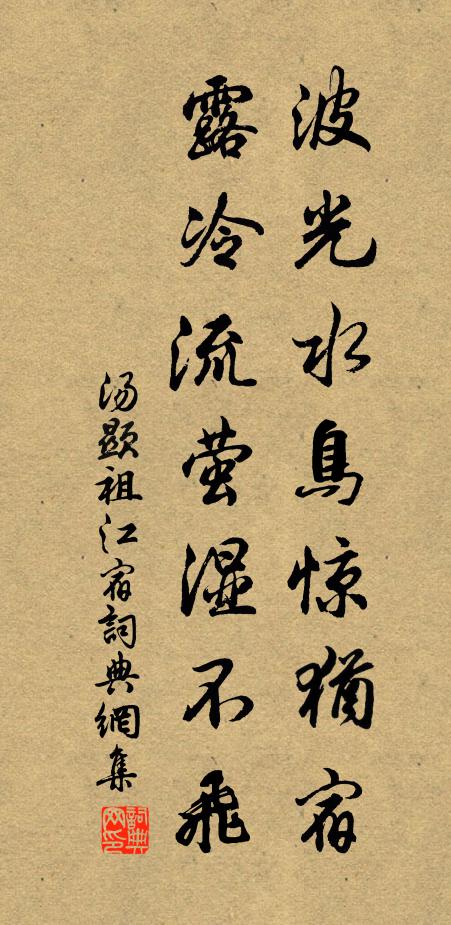 波光水鳥惊猶宿
露冷流萤湿不飛
汤顕祖江宿詞典網集
詞典网印